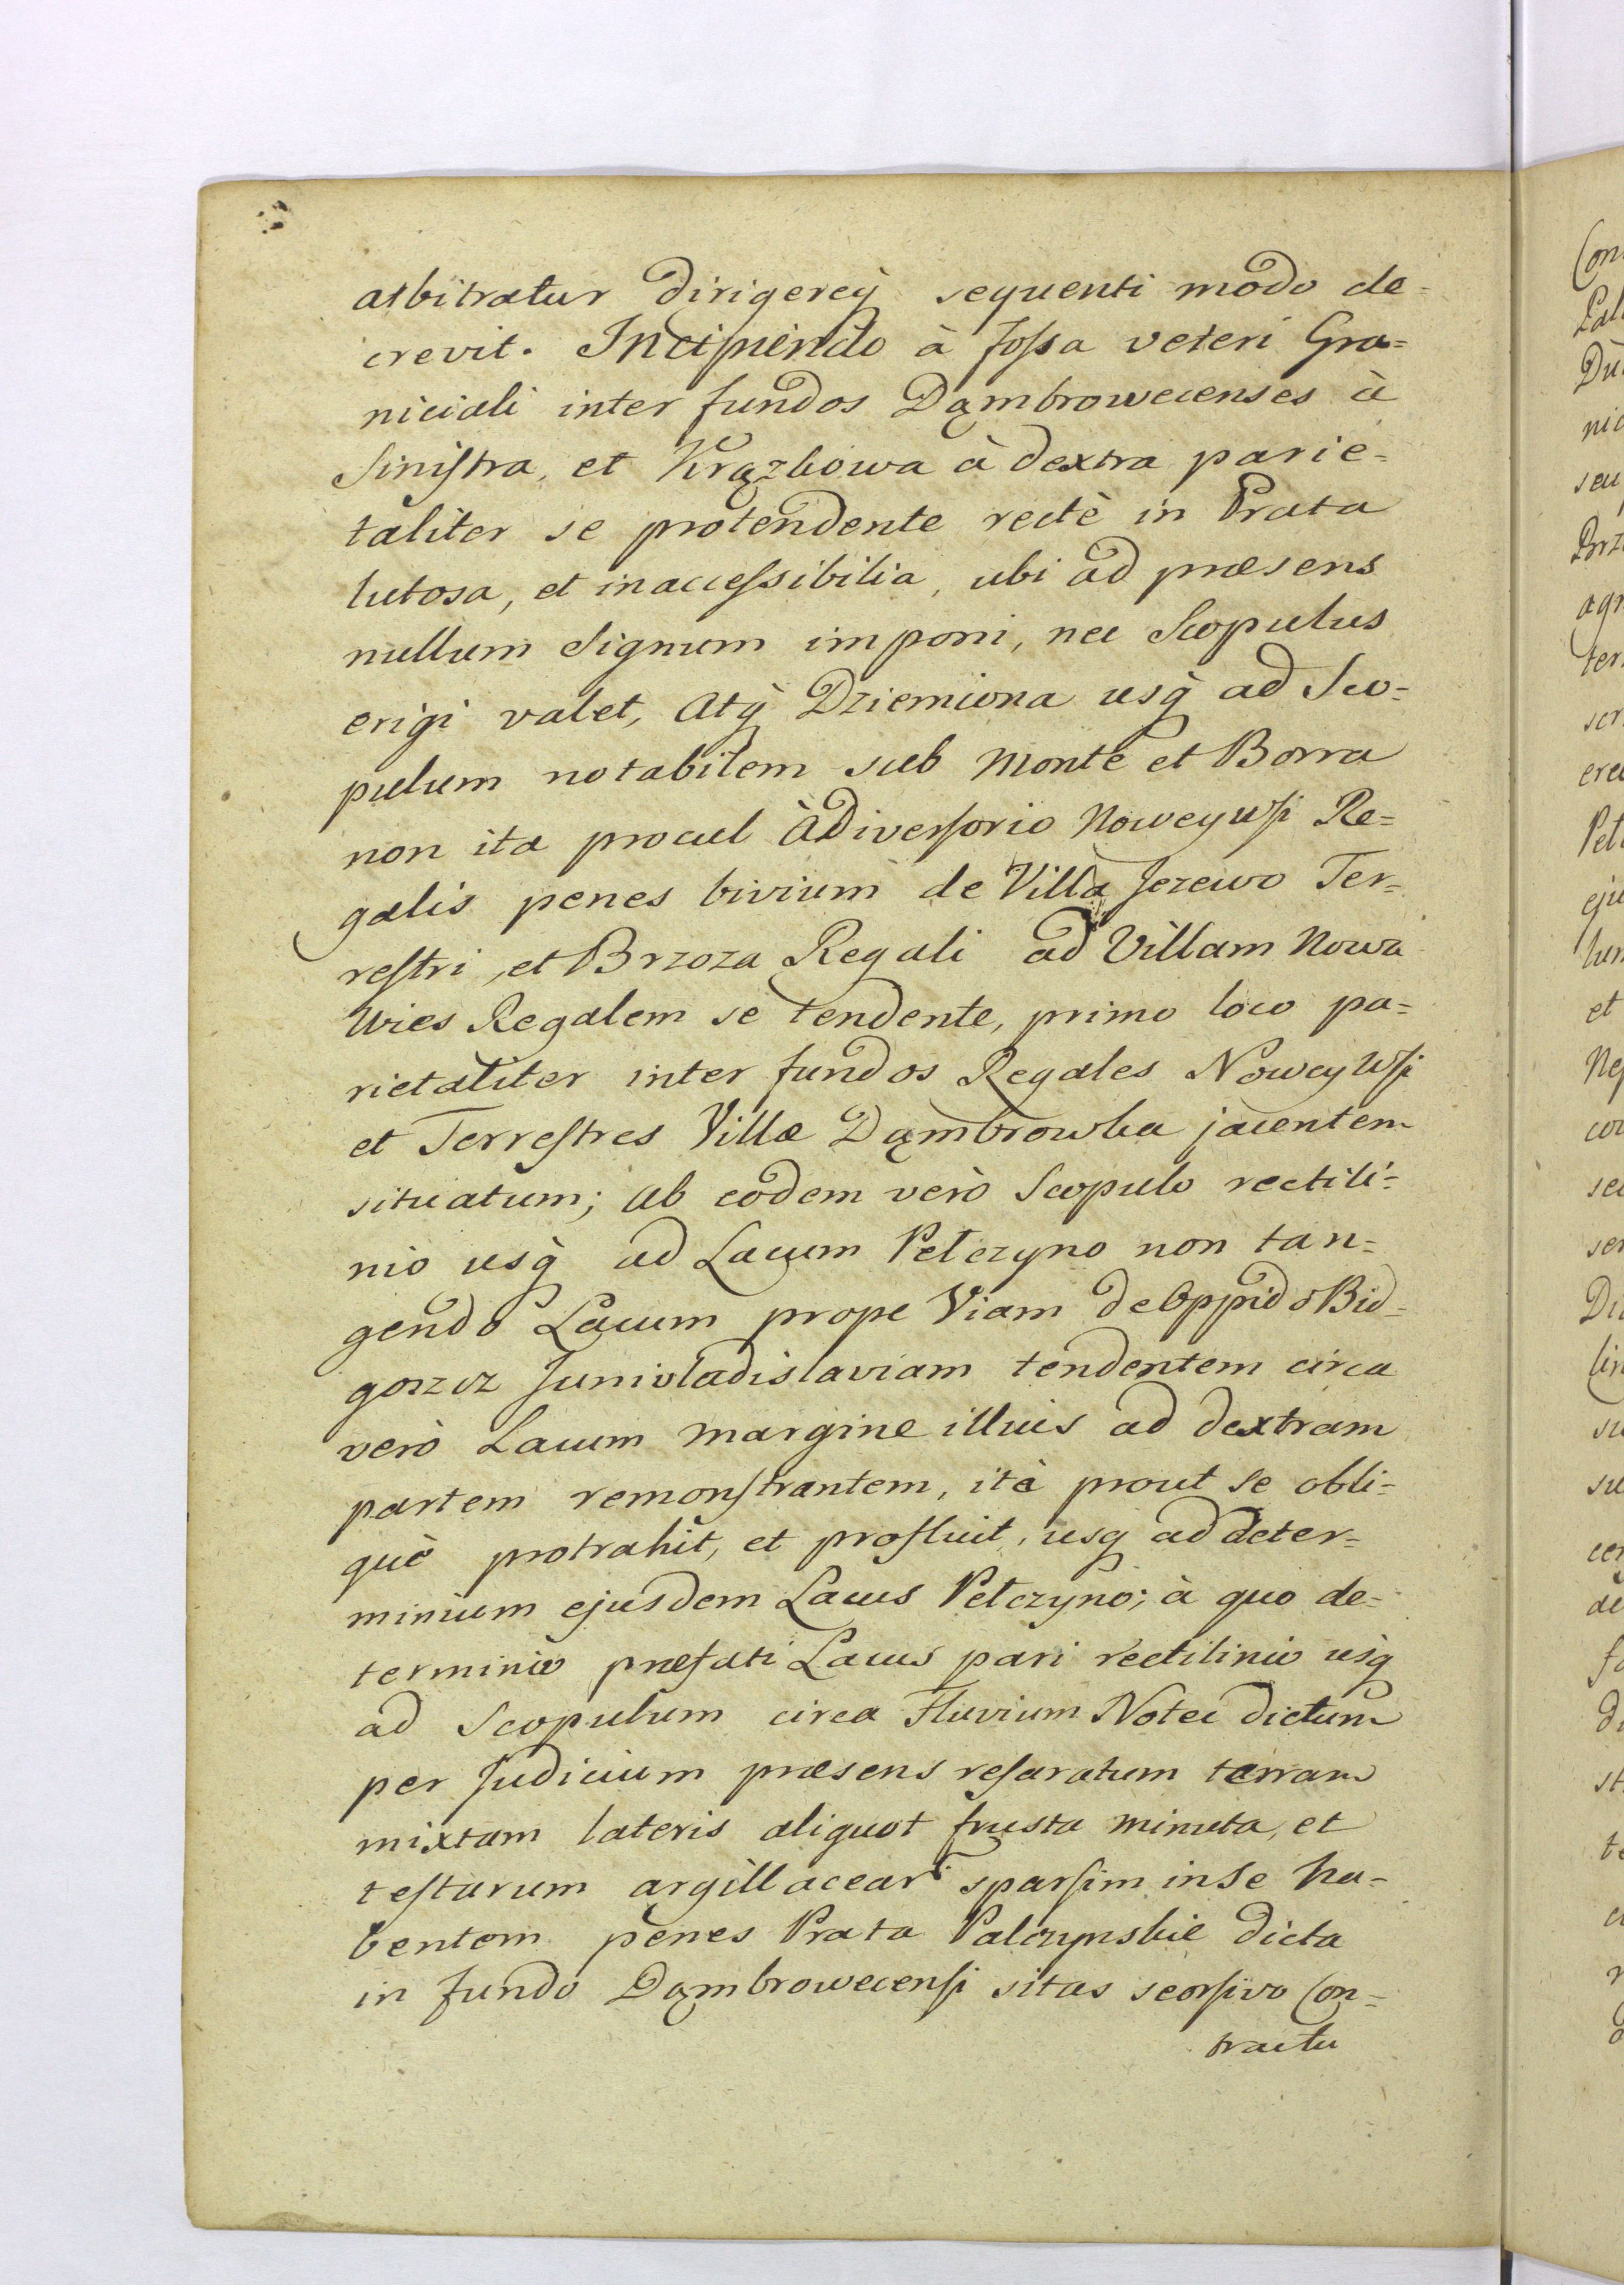 arbitratur dirigereq́ sequenti modo de-
crevit. Incipiendo à fossa veteri Gra=
niciali inter fundos Dąmbrowecenses à
Sinistra, et Krązkowa à dextra parie=
taliter se protendente rectè in Prata
lutosa, et inaccessibilia, ubi ad præsens
nullum Signum imponi, nec Scopulus
erigi valet, Atq̀ Dziemiona usq̀ ad Sco=
pulum notabilem sub Monte et Borra
non ita procul à diversorio Noweywsi Re=
galis penes bivium de Villa Jezewo Ter=
restri, et Brzoza Regali ad Villam Nowa
Wies Regalem se tendente, primo loco pa=
rietaliter inter fundos Regales Nowey Wsi
et Terrestres Villæ Dąmbrowka jacentem
situatum; Ab eodem verò Scopulo rectili=
nio usq̀ ad Lacum Pelczyno non tan=
gendo Lacum prope Viam de Oppido Bid=
goszcz Junivladislaviam tendentem circa
verò Lacum margine illius ad dextram
partem remonstrantem, ità prout se obli=
què protrahit, et profluit, usq ad deter=
minium ejusdem Lacus Pelczyno; à quo de=
terminio præfati Lacus pari rectilinio usq̀
ad Scopulum circa Fluvium Noteć dictum
per Judicium præsens reseratum terram
mixtam lateris aliquot frusta minuta, et
testarum argillacear sparsim in se ha=
bentem penes Prata Palczynskie dicta
in fundo Dąmbrowecensi sitas seorsivo Con=
tractu